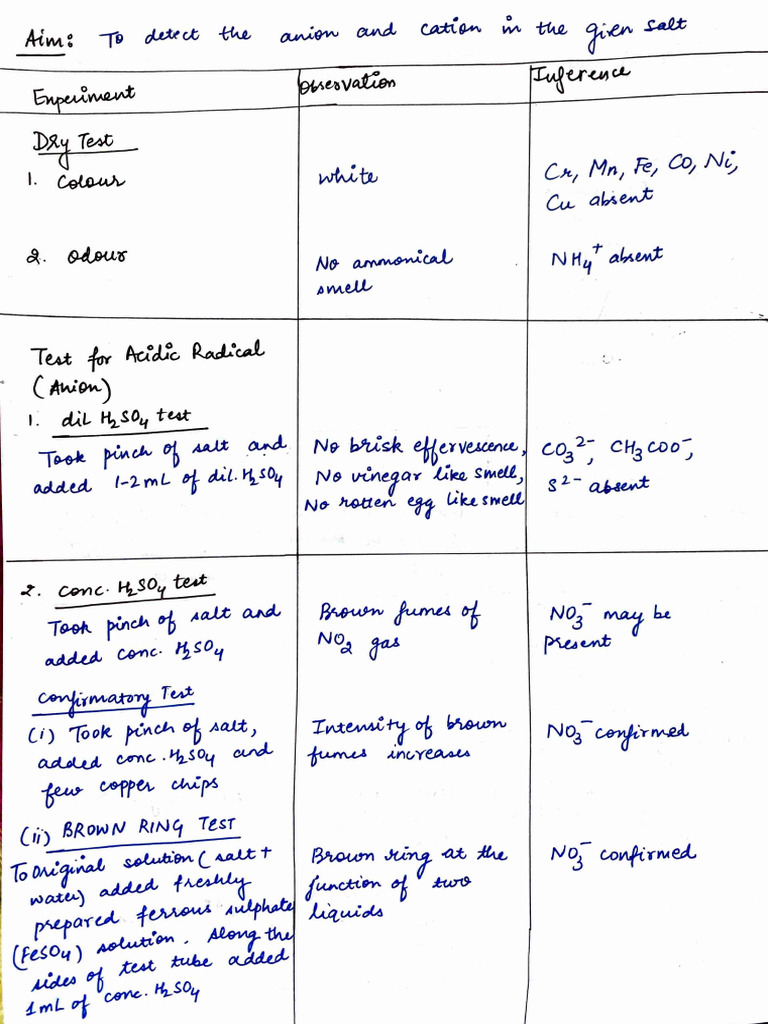 Aim: To detect the anion and cation in the given salt
Experiment
Observation
Inference
Dry Test
1. Colour
white
Cr, Mn, Fe, Co, Ni,
Cu absent
2. Odour
No ammonical
smell
NH₄⁺ absent
Test for Acidic Radical
(Anion)
1. dil H₂SO₄ test
Took pinch of salt and
added 1-2 mL of dil. H₂SO₄
No brisk effervescence,
No vinegar like smell,
No rotten egg like smell
CO₃²⁻, CH₃COO⁻,
S²⁻ absent
2. Conc. H₂SO₄ test
Took pinch of salt and
added conc. H₂SO₄
Brown fumes of
NO₂ gas
NO₃⁻ may be
present
Confirmatory Test
(i) Took pinch of salt,
added conc. H₂SO₄ and
few copper chips
Intensity of brown
fumes increases
NO₃⁻ confirmed
(ii) BROWN RING TEST
To original solution (salt +
water) added freshly
prepared ferrous sulphate
(FeSO₄) solution. Along the
sides of test tube added
1 mL of conc. H₂SO₄
Brown ring at the
function of two
liquids
NO₃⁻ confirmed